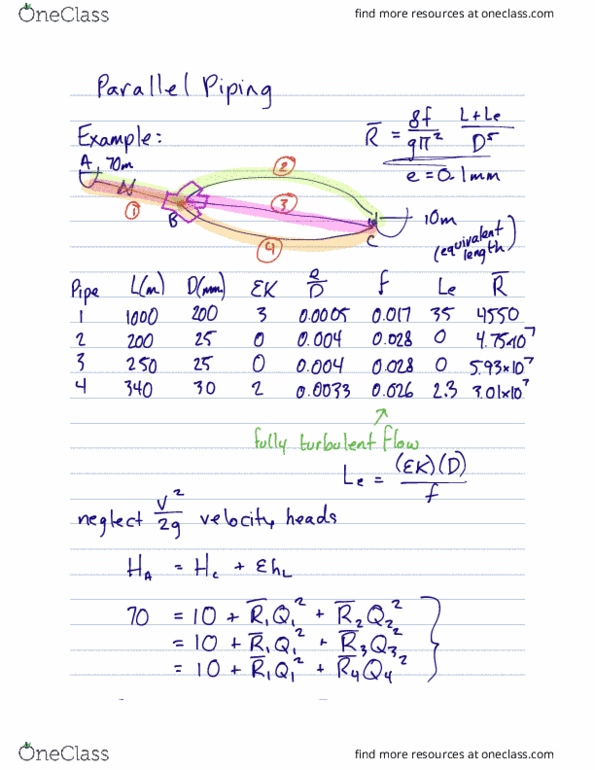 OneClass find more resources at oneclass.com
Parallel Piping
R̄ = 8f/gπ² L+Le/D⁵
Example:
e = 0.1mm
A 70m
②
N ① B ③ 10m
④ C
(equivalent length)
Pipe L(m) D(mm) ΣK e/D f Le R̄
1 1000 200 3 0.0005 0.017 35 4550
2 200 25 0 0.004 0.028 0 4.75×10⁷
3 250 25 0 0.004 0.028 0 5.93×10⁷
4 340 30 2 0.0033 0.026 2.3 3.01×10⁷
fully turbulent flow
Le = (ΣK)(D)/f
neglect V²/2g velocity heads
H_A = H_C + Σh_L
70 = 10 + R̄₁Q₁² + R̄₂Q₂²
= 10 + R̄₁Q₁² + R̄₃Q₃²
= 10 + R̄₁Q₁² + R̄₄Q₄²
OneClass find more resources at oneclass.com